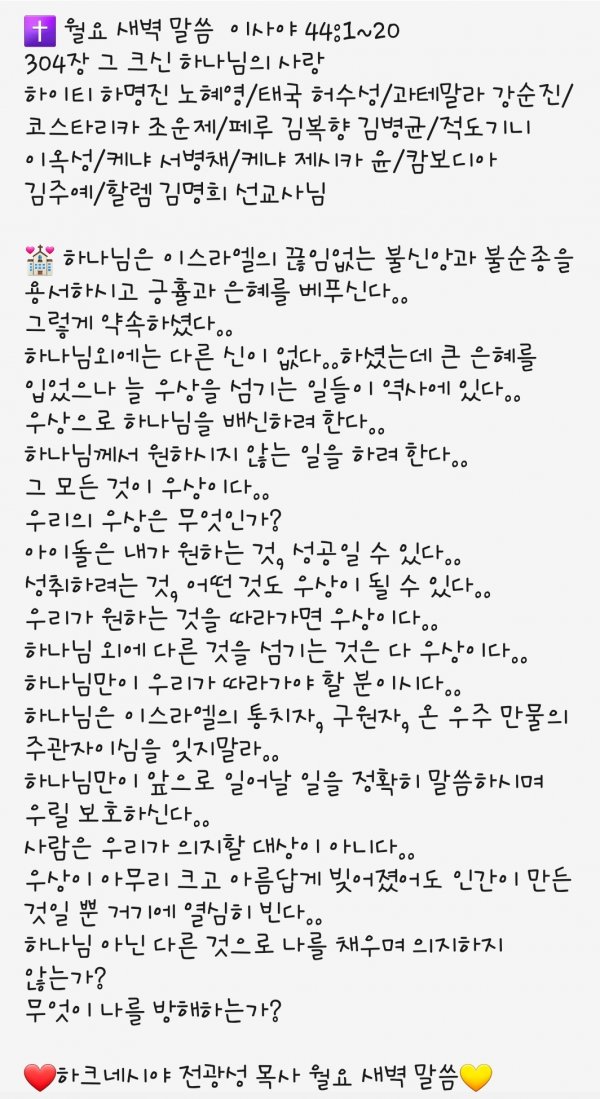 ✝️ 월요 새벽 말씀 이사야 44:1~20
304장 그 크신 하나님의 사랑
하이티 하명진 노혜영/태국 허수성/과테말라 강순진/
코스타리카 조운제/페루 김복향 김병균/적도기니
이옥성/케냐 서병채/케냐 제시카 윤/캄보디아
김주예/할렘 김명희 선교사님

💒 하나님은 이스라엘의 끊임없는 불신앙과 불순종을
용서하시고 긍휼과 은혜를 베푸신다..
그렇게 약속하셨다..
하나님외에는 다른 신이 없다..하셨는데 큰 은혜를
입었으나 늘 우상을 섬기는 일들이 역사에 있다..
우상으로 하나님을 배신하려 한다..
하나님께서 원하시지 않는 일을 하려 한다..
그 모든 것이 우상이다..
우리의 우상은 무엇인가?
아이돌은 내가 원하는 것, 성공일 수 있다..
성취하려는 것, 어떤 것도 우상이 될 수 있다..
우리가 원하는 것을 따라가면 우상이다..
하나님 외에 다른 것을 섬기는 것은 다 우상이다..
하나님만이 우리가 따라가야 할 분이시다..
하나님은 이스라엘의 통치자, 구원자, 온 우주 만물의
주관자이심을 잊지말라..
하나님만이 앞으로 일어날 일을 정확히 말씀하시며
우릴 보호하신다..
사람은 우리가 의지할 대상이 아니다..
우상이 아무리 크고 아름답게 빚어졌어도 인간이 만든
것일 뿐 거기에 열심히 빈다..
하나님 아닌 다른 것으로 나를 채우며 의지하지
않는가?
무엇이 나를 방해하는가?

❤️하크네시야 전광성 목사 월요 새벽 말씀💛